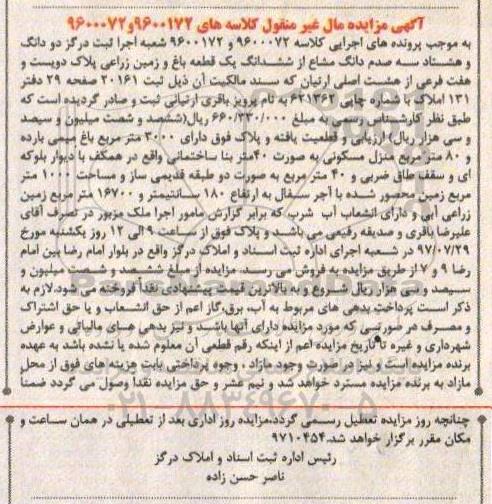 آگهی مزایده مال غیر منقول کلاسه های ۹۶۰۰۱۷۲و۹۶۰۰۰۷۲
به موجب پرونده های اجرایی کلاسه ۹۶۰۰۰۷۲ و ۹۶۰۰۱۷۲ شعبه اجرا ثبت درگز دو دانگ
و هشتاد سه صدم دانگ مشاع از ششدانگ یک قطعه باغ و زمین زراعی پلاک دویست و
هفت فرعی از هشت اصلی ارتیان که سند مالکیت آن ذیل ثبت ۲۰۱۶۱ صفحه ۲۹ دفتر
۱۳۱ املاک با شماره چاپی ۶۲۱۳۶۲ به نام پرویز باقری ارتیانی ثبت و صادر گردیده است که
طبق نظر کارشناس رسمی به مبلغ ۶۶۰/۳۳۰/۰۰۰ ریال(ششصد و شصت میلیون و سیصد
و سی هزار ریال) ارزیابی و قطعیت یافته و پلاک فوق دارای ۳۰۰۰ متر مربع باغ میبی بارده
و ۸۰ متر مربع منزل مسکونی به صورت ۴۰متر بنا ساختمانی واقع در همکف با دیوار بلوکه
ای و سقف طاق ضربی و ۴۰ متر مربع به صورت دو طبقه قدیمی ساز و مساحت ۱۰۰۰ متر
مربع زمین محصور شده با آجر سفال به ارتفاع ۱۸۰ سانتیمتر و ۱۶۷۰۰ متر مربع زمین
زراعی آبی و دارای انشعاب آب شرب که برابر گزارش مامور اجرا ملک مزبور در تصرف آقای
علیرضا باقری و صدیقه رفیعی می باشد و پلاک فوق از ساعت ۹ الی ۱۲ روز یکشنبه مورخ
۹۷/۰۷/۲۹ در شعبه اجرای اداره ثبت اسناد و املاک درگز واقع در بلوار امام رضا بین امام
رضا ۹ و ۷ از طریق مزایده به فروش می رسد. مزایده از مبلغ ششصد و شصت میلیون و
سیصد و سی هزار ریال شروع و به بالاترین قیمت پیشنهادی نقداً فروخته می شود.لازم به
ذکر است پرداخت بدهی های مربوط به آب، برق،گاز اعم از حق انشعاب و یا حق اشتراک
و مصرف در صورتیی که مورد مزایده دارای آنها باشد و نیز بدهی های مالیاتی و عوارض
شهرداری و غیره تا تاریخ مزایده اعم از اینکه رقم قطعی آن معلوم شده یا نشده باشد به عهده
برنده مزایده است و نیز در صورت وجود مازاد ، وجوه پرداختی بابت هزینه های فوق از محل
مازاد به برنده مزایده مسترد خواهد شد و نیم عشر و حق مزایده نقدا وصول می گردد ضمناً
چنانچه روز مزایده تعطیل رسمی گردد،مزایده روز اداری بعد از تعطیلی در همان ساعت و
مکان مقرر برگزار خواهد شد.۹۷۱۰۴۵۴
رئیس اداره ثبت اسناد و املاک درگز
ناصر حسن زاده
۰۲۱-۸۸۳۴۹۶۷۰-۵